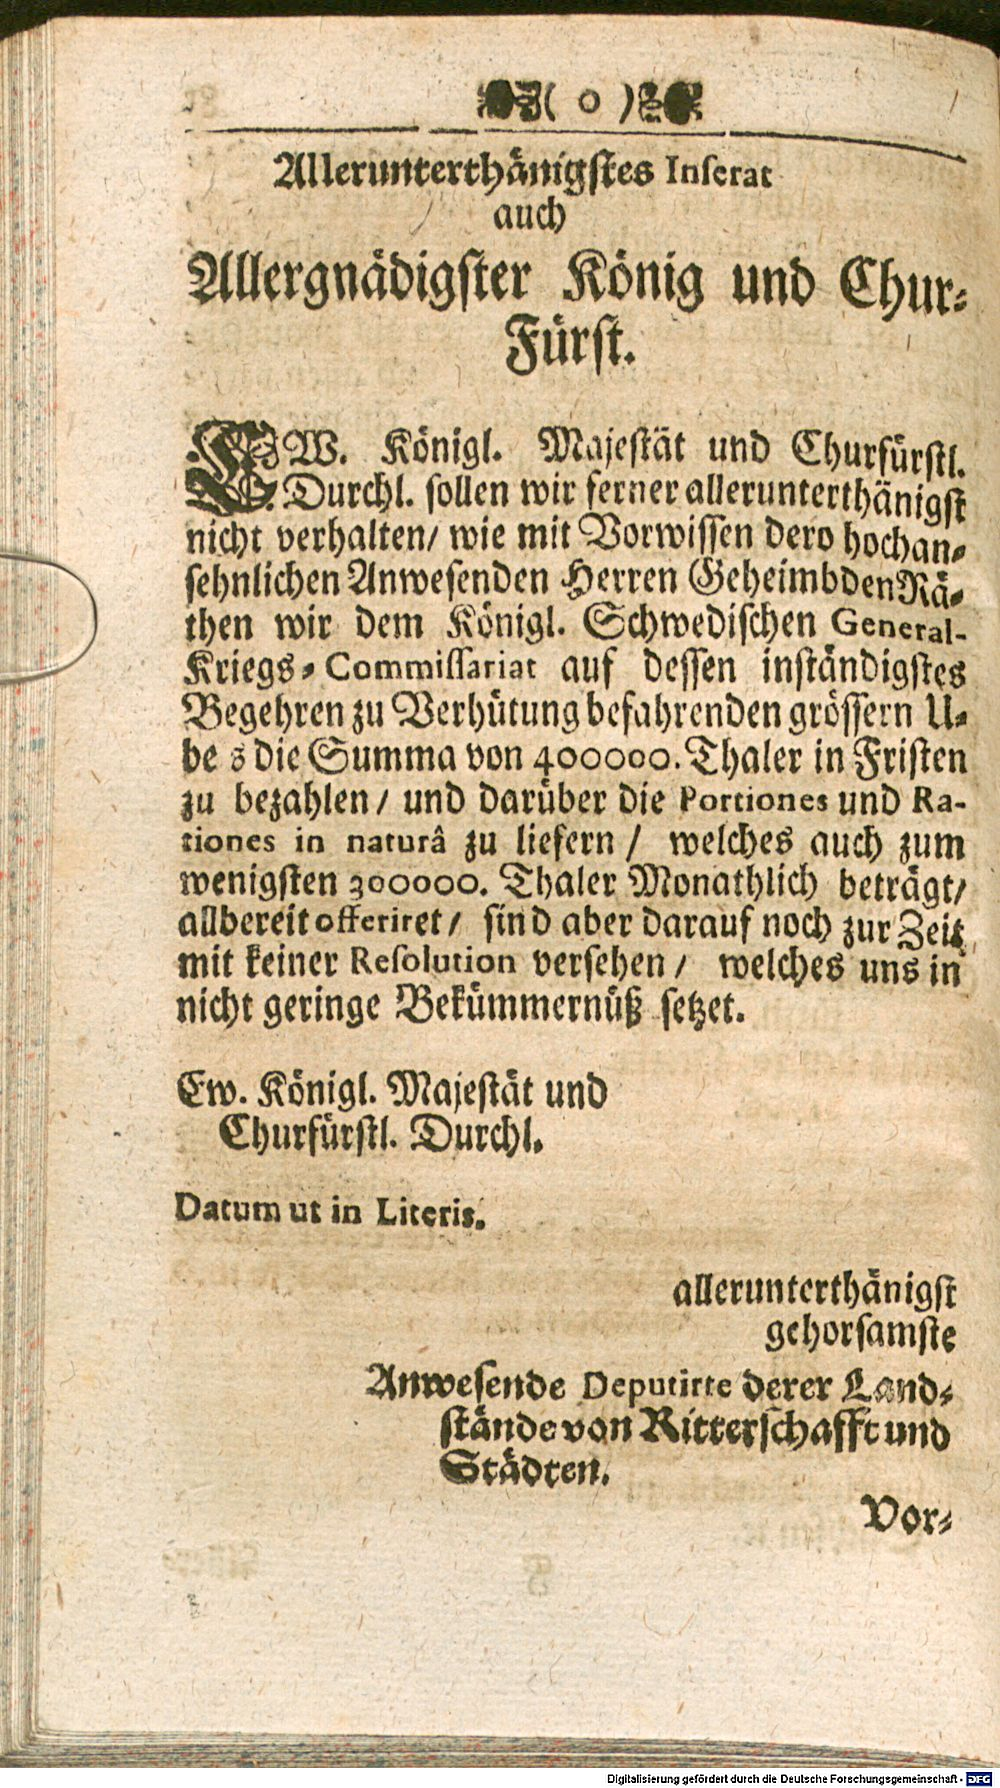 ( o )
Allerunterthänigstes Inserat
auch
Allergnädigster König und Chur-
Fürst.
EW. Königl. Majestät und Churfürstl.
Durchl. sollen wir ferner allerunterthänigst
nicht verhalten/ wie mit Vorwissen dero hochan-
sehnlichen Anwesenden Herren Geheimbden Rä-
then wir dem Königl. Schwedischen General-
Kriegs-Commissariat auf dessen inständigstes
Begehren zu Verhütung befahrenden grössern U-
be s die Summa von 400000. Thaler in Fristen
zu bezahlen/ und darüber die Portiones und Ra-
tiones in naturâ zu liefern/ welches auch zum
wenigsten 300000. Thaler Monathlich beträgt/
allbereit offeriret/ sind aber darauf noch zur Zeit
mit keiner Resolution versehen/ welches uns in
nicht geringe Bekümmernüß setzet.
Ew. Königl. Majestät und
Churfürstl. Durchl.
Datum ut in Literis.
allerunterthänigst
gehorsamste
Anwesende Deputirte derer Land-
stände von Ritterschafft und
Städten.
Vor-
Digitalisierung gefördert durch die Deutsche Forschungsgemeinschaft - DFG